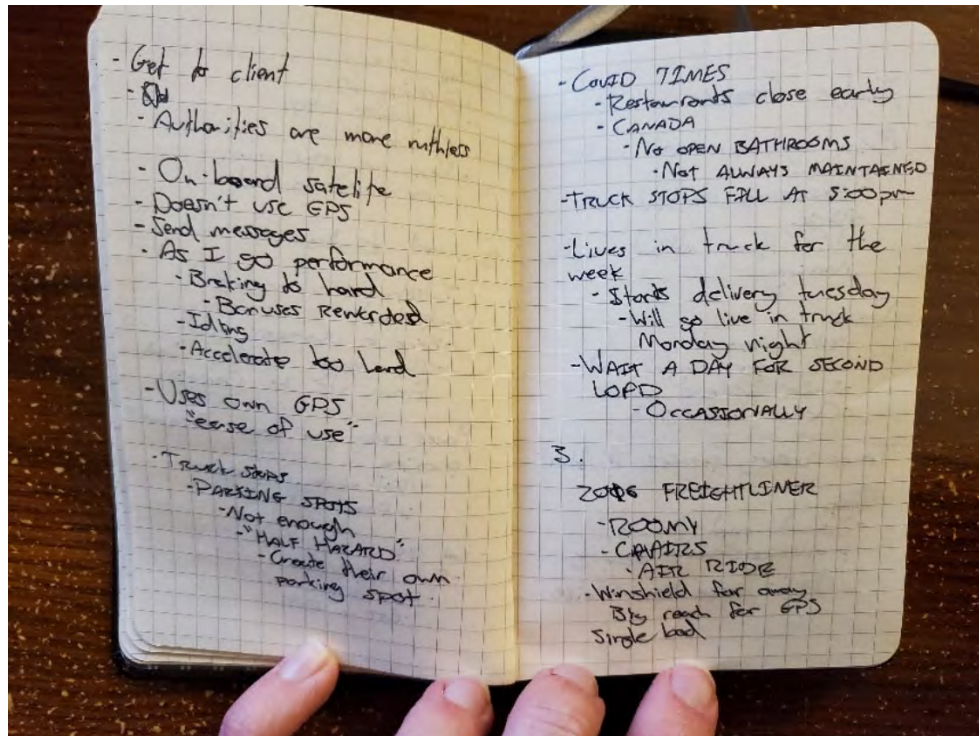 - Get to client
-
- Authorities are more ruthless
- On-board satelite
- Doesn't use GPS
- Send messages
- As I go performance
- Braking to hard
- Bonuses Rewarded
- Idling
- Accelerate too hard
- Uses own GPS
"ease of use"
- Truck stops
- PARKING SPOTS
- Not enough
- "HALF HAZARD"
- Create their own
parking spot
- COVID TIMES
- Restaurants close early
- CANADA
- No OPEN BATHROOMS
- NOT ALWAYS MAINTAINED
- TRUCK STOPS FILL AT 5:00pm
- Lives in truck for the
week
- Starts delivery tuesday
- Will go live in truck
Monday night
- WAIT A DAY FOR SECOND
LOAD
- OCCASSIONALLY
3.
FREIGHTLINER
- ROOMY
- CHAIRS
- AIR RIDE
- Winshield far away
Big reach for GPS
Single bed